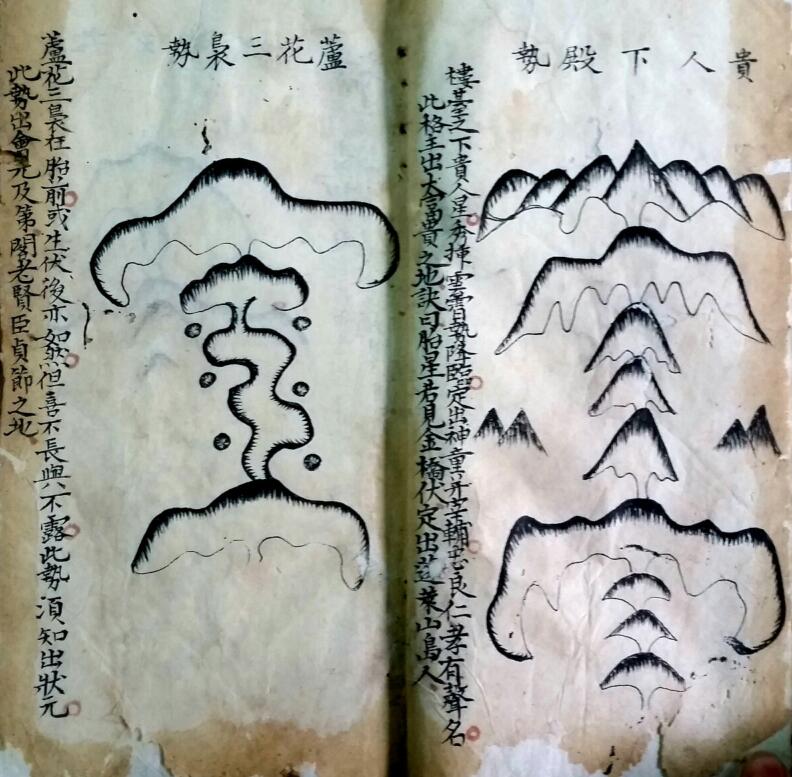 貴人下殿勢
樓臺之下貴人星秀插雲霄勢降臨定出神童并宰輔忠良仁孝有聲名
此格主出大富貴之地訣曰胎星若見金橋伏定出蓬萊山島人
蘆花三裊勢
蘆花三裊在胎前或生伏後亦如然但喜不長與不露此勢須知出狀元
此勢出會元及第閣老賢臣貞節之地